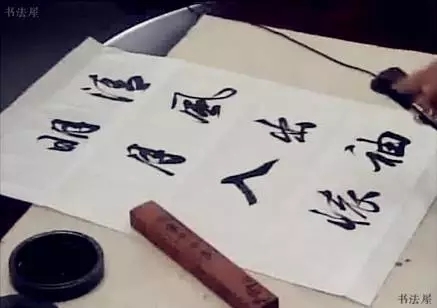 书法屋
清風出袖
明月入懷
书法屋